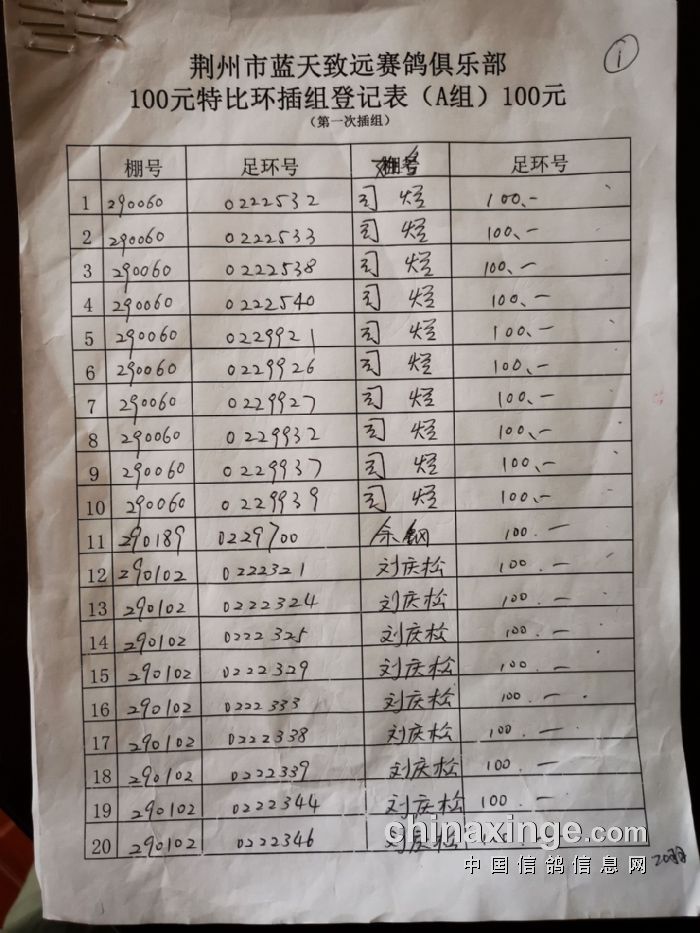 ①
荆州市蓝天致远赛鸽俱乐部
100元特比环插组登记表（A组）100元
（第一次插组）
棚号 足环号 棚号 足环号
1 290060 0222532 司烃 100.-
2 290060 0222533 司烃 100.-
3 290060 0222538 司烃 100.-
4 290060 0222540 司烃 100.-
5 290060 0229921 司烃 100.-
6 290060 0229926 司烃 100.-
7 290060 0229927 司烃 100.-
8 290060 0229932 司烃 100.-
9 290060 0229937 司烃 100.-
10 290060 0229939 司烃 100.-
11 290189 0229700 余钢 100.-
12 290102 0222321 刘庆松 100.-
13 290102 0222324 刘庆松 100.-
14 290102 0222325 刘庆松 100.-
15 290102 0222329 刘庆松 100.-
16 290102 0222333 刘庆松 100.-
17 290102 0222338 刘庆松 100.-
18 290102 0222339 刘庆松 100.-
19 290102 0222344 刘庆松 100.-
20 290102 0222346 刘庆松 100.-
chinaxinge.com
中国信鸽信息网